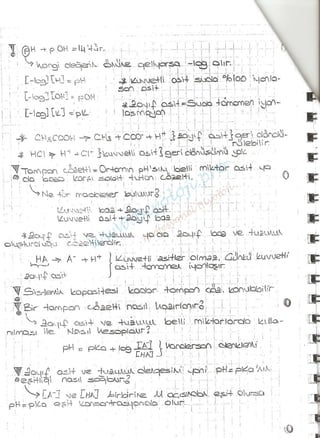 pH + pOH = 14'dür.
Hangi değerin önüne geliyorsa -log alır.
[-log][H] = pH
* Kuvvetli asit suda %100 iyonla-
şan asit
[-log][OH] = pOH
* Zayıf asit = Suda tamamen iyon-
laşmayan
[-log][K] = pK
* CH₃COOH → CH₃ + COO⁻ + H⁺ } zayıf asit } geri dönüşü-
nülebilir
* HCl → H⁺ + Cl⁻ } kuvvetli asit } geri dönüşümü yok
Tampon çözelti = Ortamın pH'sını belli miktar asit ya
da baza karşı sabit tutan çözelti.
Ne tür maddeler bulunur?
Kuvvetli baz + zayıf asit
Kuvvetli asit + zayıf baz
* Zayıf asit ve tuzunun ya da zayıf baz ve tuzunun
oluşturduğu çözeltilerdir.
HA → A⁻ + H⁺ } Kuvvetli asitler olmaz. Çünkü kuvvetli
asit tamamen iyonlaşır
zayıf asit
Sistemik kapasitesi kadar tampon çöz. konulabilir
Bir tampon çözelti nasıl hazırlanır?
Zayıf asit ve tuzunun belli miktarlarda kulla-
nılması ile. Nasıl hesaplanır?
pH = pKa + log [A⁻]/[HA] } Henderson denklemi
Zayıf asit ve tuzunun dengesini yani pH = pKa'nın
eşitliği nasıl sağlanır?
[A⁻] ve [HA] birbirine M açısından eşit olursa
pH = pKa eşit konsantrasyonda olur.